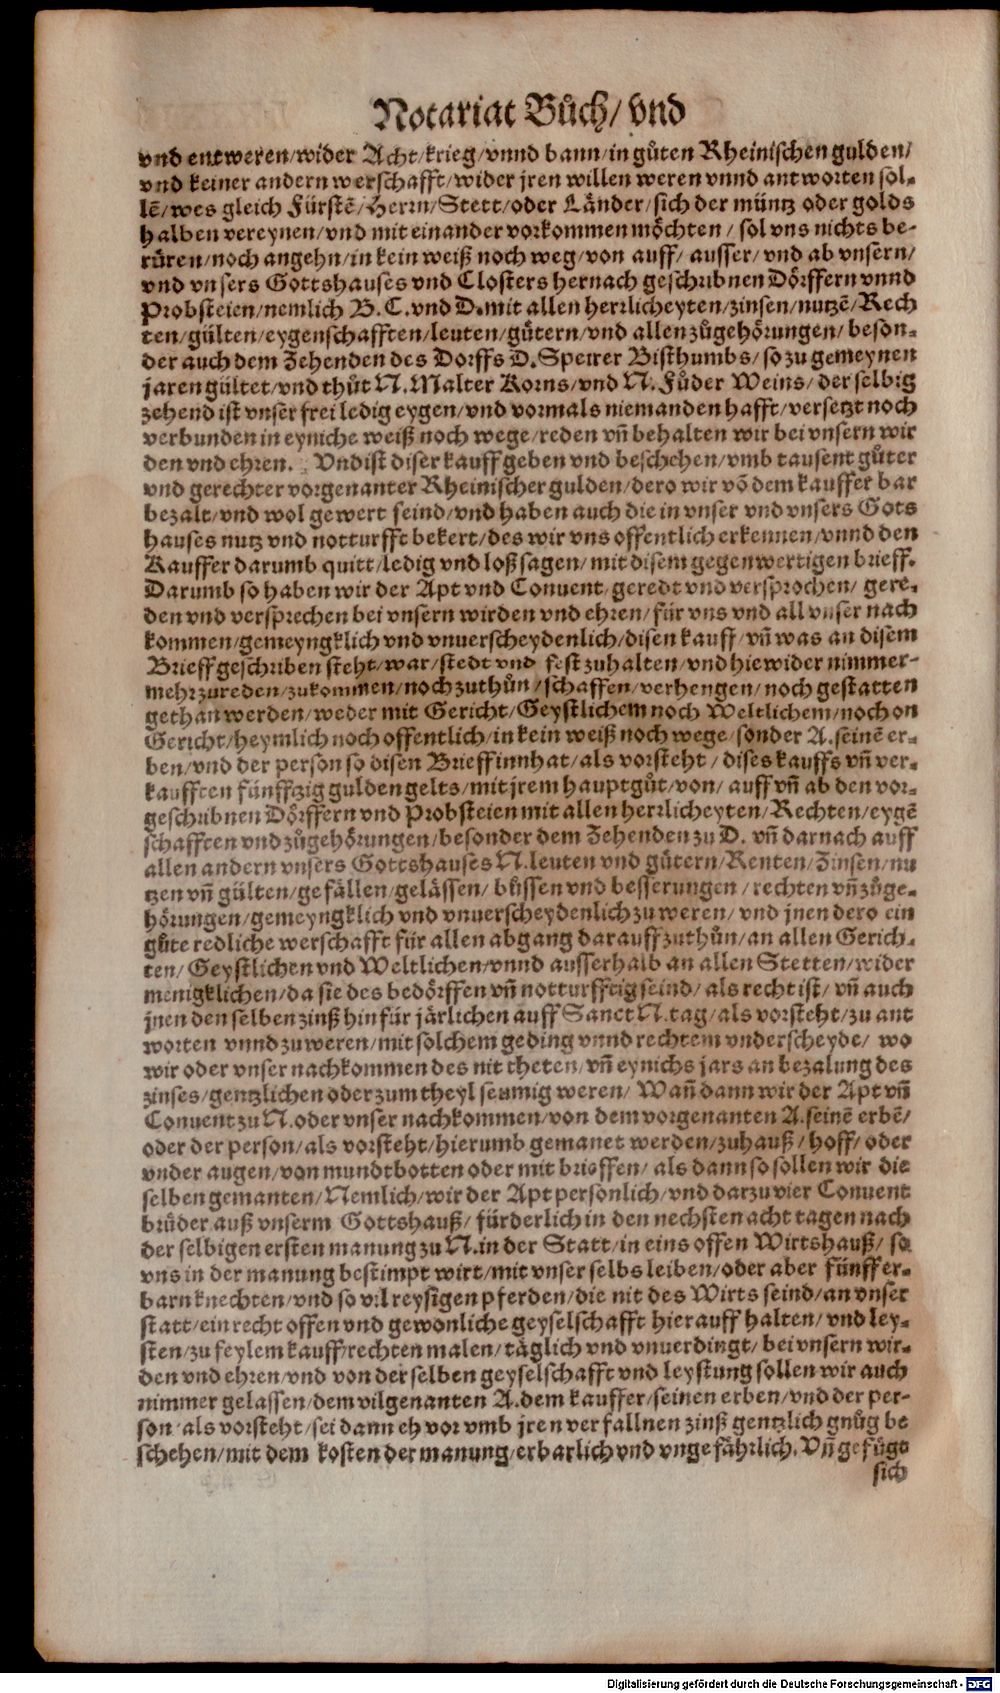 Notariat Bůch/ vnd
vnd entweren/wider Acht/krieg/vnnd bann/in gůten Rheinischen gulden/
vnd keiner andern werschafft/wider jren willen weren vnnd antworten sol-
lē/wes gleich Fürstē/Herrn/Stett/oder Länder/sich der müntz oder golds
halben vereynen/vnd mit einander vorkommen möchten/ sol vns nichts be-
rüren/noch angehn/in kein weiß noch weg/von auff/ ausser/ vnd ab vnsern/
vnd vnsers Gottshauses vnd Closters hernach geschribnen Dörffern vnnd
Probsteien/nemlich B. C. vnd D. mit allen herrlicheyten/zinsen/nutzē/Rech
ten/gülten/eygenschafften/leuten/gůtern/vnd allen zůgehörungen/ beson-
der auch dem Zehenden des Dorffs D. Speirer Bisthumbs/ so zu gemeynen
jaren gültet/vnd thůt N. Malter Korns/vnd N. Fůder Weins/ der selbig
zehend ist vnser frei ledig eygen/vnd vormals niemanden hafft/versetzt noch
verbunden in eyniche weiß noch wege/reden vñ behalten wir bei vnsern wir
den vnd ehren. Vnd ist diser kauff geben vnd beschehen/vmb tausent gůter
vnd gerechter vorgenanter Rheinischer gulden/dero wir vō dem kauffer bar
bezalt/vnd wol gewert seind/vnd haben auch die in vnser vnd vnsers Gots
hauses nutz vnd notturfft bekert/des wir vns offentlich erkennen/vnnd den
Kauffer darumb quitt/ledig vnd loß sagen/mit disem gegenwertigen brieff.
Darumb so haben wir der Apt vnd Conuent/geredt vnd versprochen/ gere-
den vnd versprechen bei vnsern wirden vnd ehren/für vns vnd all vnser nach
kommen/gemeyngklich vnd vnuerscheydenlich/disen kauff/vñ was an disem
Brieff geschriben steht/war/stedt vnd fest zuhalten/vnd hiewider nimmer-
mehr zureden/zukommen/noch zuthůn/schaffen/verhengen/noch gestatten
gethan werden/weder mit Gericht/Geystlichem noch Weltlichem/noch on
Gericht/heymlich noch offentlich/in kein weiß noch wege/sonder A. seinē er-
ben/vnd der person so disen Brieff innhat/als vorsteht/ dises kauffs vñ ver-
kaufften fünfftzig gulden gelts/mit jrem hauptgůt/von/auff vñ ab den vor-
geschribnen Dörffern vnd Probsteien mit allen herrlicheyten/Rechten/eygē
schafften vnd zůgehörungen/besonder dem Zehenden zu D. vñ darnach auff
allen andern vnsers Gottshauses N. leuten vnd gůtern/Renten/Zinsen/nu
tzen vñ gülten/gefällen/gelässen/ bůssen vnd besserungen/rechten vñ zůge-
hörungen/gemeyngklich vnd vnuerscheydenlich zu weren/ vnd jnen dero ein
gůte redliche werschafft für allen abgang darauff zuthůn/an allen Gerich-
ten/ Geystlichen vnd Weltlichen/vnnd ausserhalb an allen Stetten/wider
menigklichen/da sie des bedörffen vñ notturfftig seind/als recht ist/ vñ auch
jnen den selben zinß hinfür järlichen auff Sanct N. tag/als vorsteht/zu ant
worten vnnd zuweren/mit solchem geding vnnd rechtem vnderscheyde/ wo
wir oder vnser nachkommen des nit theten/vñ eynichs jars an bezalung des
zinses/gentzlichen oder zum theyl seumig weren/ Wañ dann wir der Apt vñ
Conuent zu N. oder vnser nachkommen/von dem vorgenanten A. seinē erbē/
oder der person/als vorsteht/hierumb gemanet werden/zuhauß/hoff/oder
vnder augen/von mundtbotten oder mit brieffen/als dann so sollen wir die
selben gemanten/Nemlich/wir der Apt personlich/vnd darzu vier Conuent
brůder auß vnserm Gottshauß/ fürderlich in den nechsten acht tagen nach
der selbigen ersten manung zu N. in der Statt/in eins offen Wirtshauß/ so
vns in der manung bestimpt wirt/mit vnser selbs leiben/oder aber fünff er-
barn knechten/vnd so vil reysigen pferden/die nit des Wirts seind/an vnser
statt/ein recht offen vnd gewonliche geyselschafft hierauff halten/vnd ley-
sten/zu feylem kauff/rechten malen/täglich vnd vnuerdingt/ bei vnsern wir-
den vnd ehren/vnd von der selben geyselschafft vnd leystung sollen wir auch
nimmer gelassen/dem vilgenanten A. dem kauffer/seinen erben/vnd der per-
son als vorsteht/sei dann eh vor vmb jren verfallnen zinß gentzlich gnůg be
schehen/mit dem kosten der manung/erbarlich vnd vngefährlich. Vñ gefůge
sich
Digitalisierung gefördert durch die Deutsche Forschungsgemeinschaft - DFG